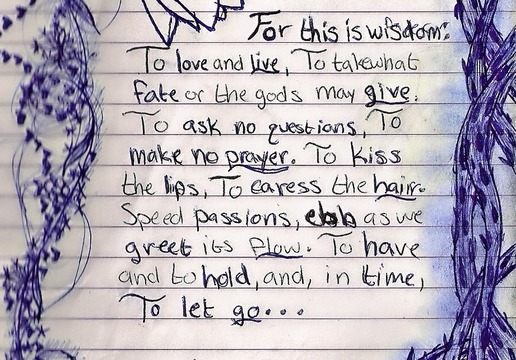 For this is wisdom:
To love and live, To take what
fate or the gods may give.
To ask no questions, To
make no prayer. To kiss
the lips, To caress the hair.
Speed passions, ebb as we
greet its flow. To have
and to hold, and, in time,
To let go...